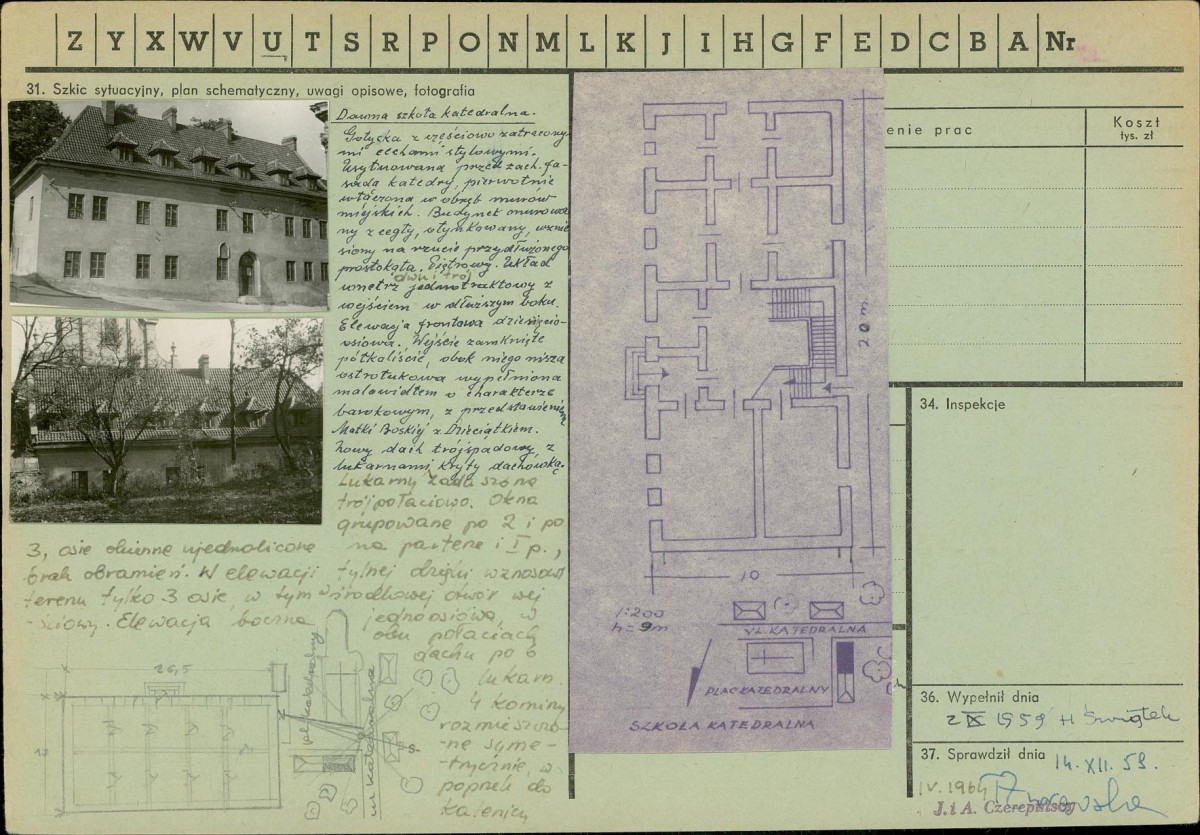 Z Y X W V U T S R P O N M L K J I H G F E D C B A Nr
31. Szkic sytuacyjny, plan schematyczny, uwagi opisowe, fotografia
Dawna szkoła katedralna.
Gotycka z częściowo zatracony-
mi cechami stylowymi.
Usytuowana przed zach. fa-
sadą katedry, pierwotnie
włączona w obręb murów
miejskich. Budynek murowa
ny z cegły, otynkowany, wznie
siony na rzucie przydłużonego
prostokąta. Piętrowy. Układ
dwu i trój
wnętrz jednotraktowy z
wejściem w dłuższym boku.
Elewacja frontowa dziesięcio-
osiowa. Wejście zamknięte
półkoliście, obok niego nisza
ostrołukowa wypełniona
malowidłem o charakterze
barokowym, z przedstawieniem
Matki Boskiej z Dzieciątkiem.
Nowy dach trójspadowy, z
lukarnami kryty dachówką.
Lukarny zadaszone
trójpołaciowo. Okna
grupowane po 2 i po
3, osie okienne ujednolicone na parterze i I p.,
brak obramień. W elewacji tylnej dzięki wznosowi
terenu tylko 3 osie, w tym w środkowej otwór wej
-ściowy. Elewacja boczna jednoosiowa, w
obu połaciach
dachu po 6
lukarn.
4 kominy
rozmieszczo-
ne syme-
-trycznie, w
poprzek do
kalenicy
26,5
pl. katedralny
ul. katedralna
S-
20 m.
10
1:200
h = 9m
UL. KATEDRALNA
PLAC KATEDRALNY
SZKOŁA KATEDRALNA
enie prac
Koszt
tys. zł
34. Inspekcje
36. Wypełnił dnia
2 IX 1959 H Świątek
37. Sprawdził dnia
14. XII. 59.
IV. 1964
J. i A. Czerepińscy